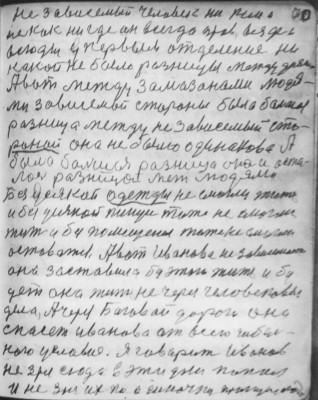 не зависемый человек ни кем а
не как ни где он всегда прав, везде и
всюды у первым отделение ни
какой не было разницы между
А вот между замазанами людя-
ми зависемой стороны была балшая
разница между не зависемый сто-
роной она не было одинакова А
была балшая разница она и оста-
лося разницой меж людями
Без усякой одежды не смогли жить
и без усякой пищи тоже не смогли
жить и бз помещения тоже не смогли
оставатся. А вот Иванова не зависемая
она заставила бз этого жить и бу
дет она жить не через человековы
дела, А через Баговай дорога она
спасет иванова от всего гибел-
ного условие. Я говарит Иванов
не зря сюда в эти дни попал
и не зря их по а диночки